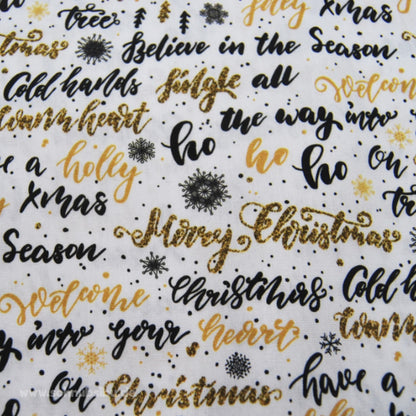 tree holly xmas
Christmas Believe in the Season
Cold hands Jingle all Welcome
Warm heart the way into
have a holly ho ho ho Oh
xmas tr
Season Merry Christmas
Welcome Christmas Cold h
way into your heart Warm
Oh Christmas have a